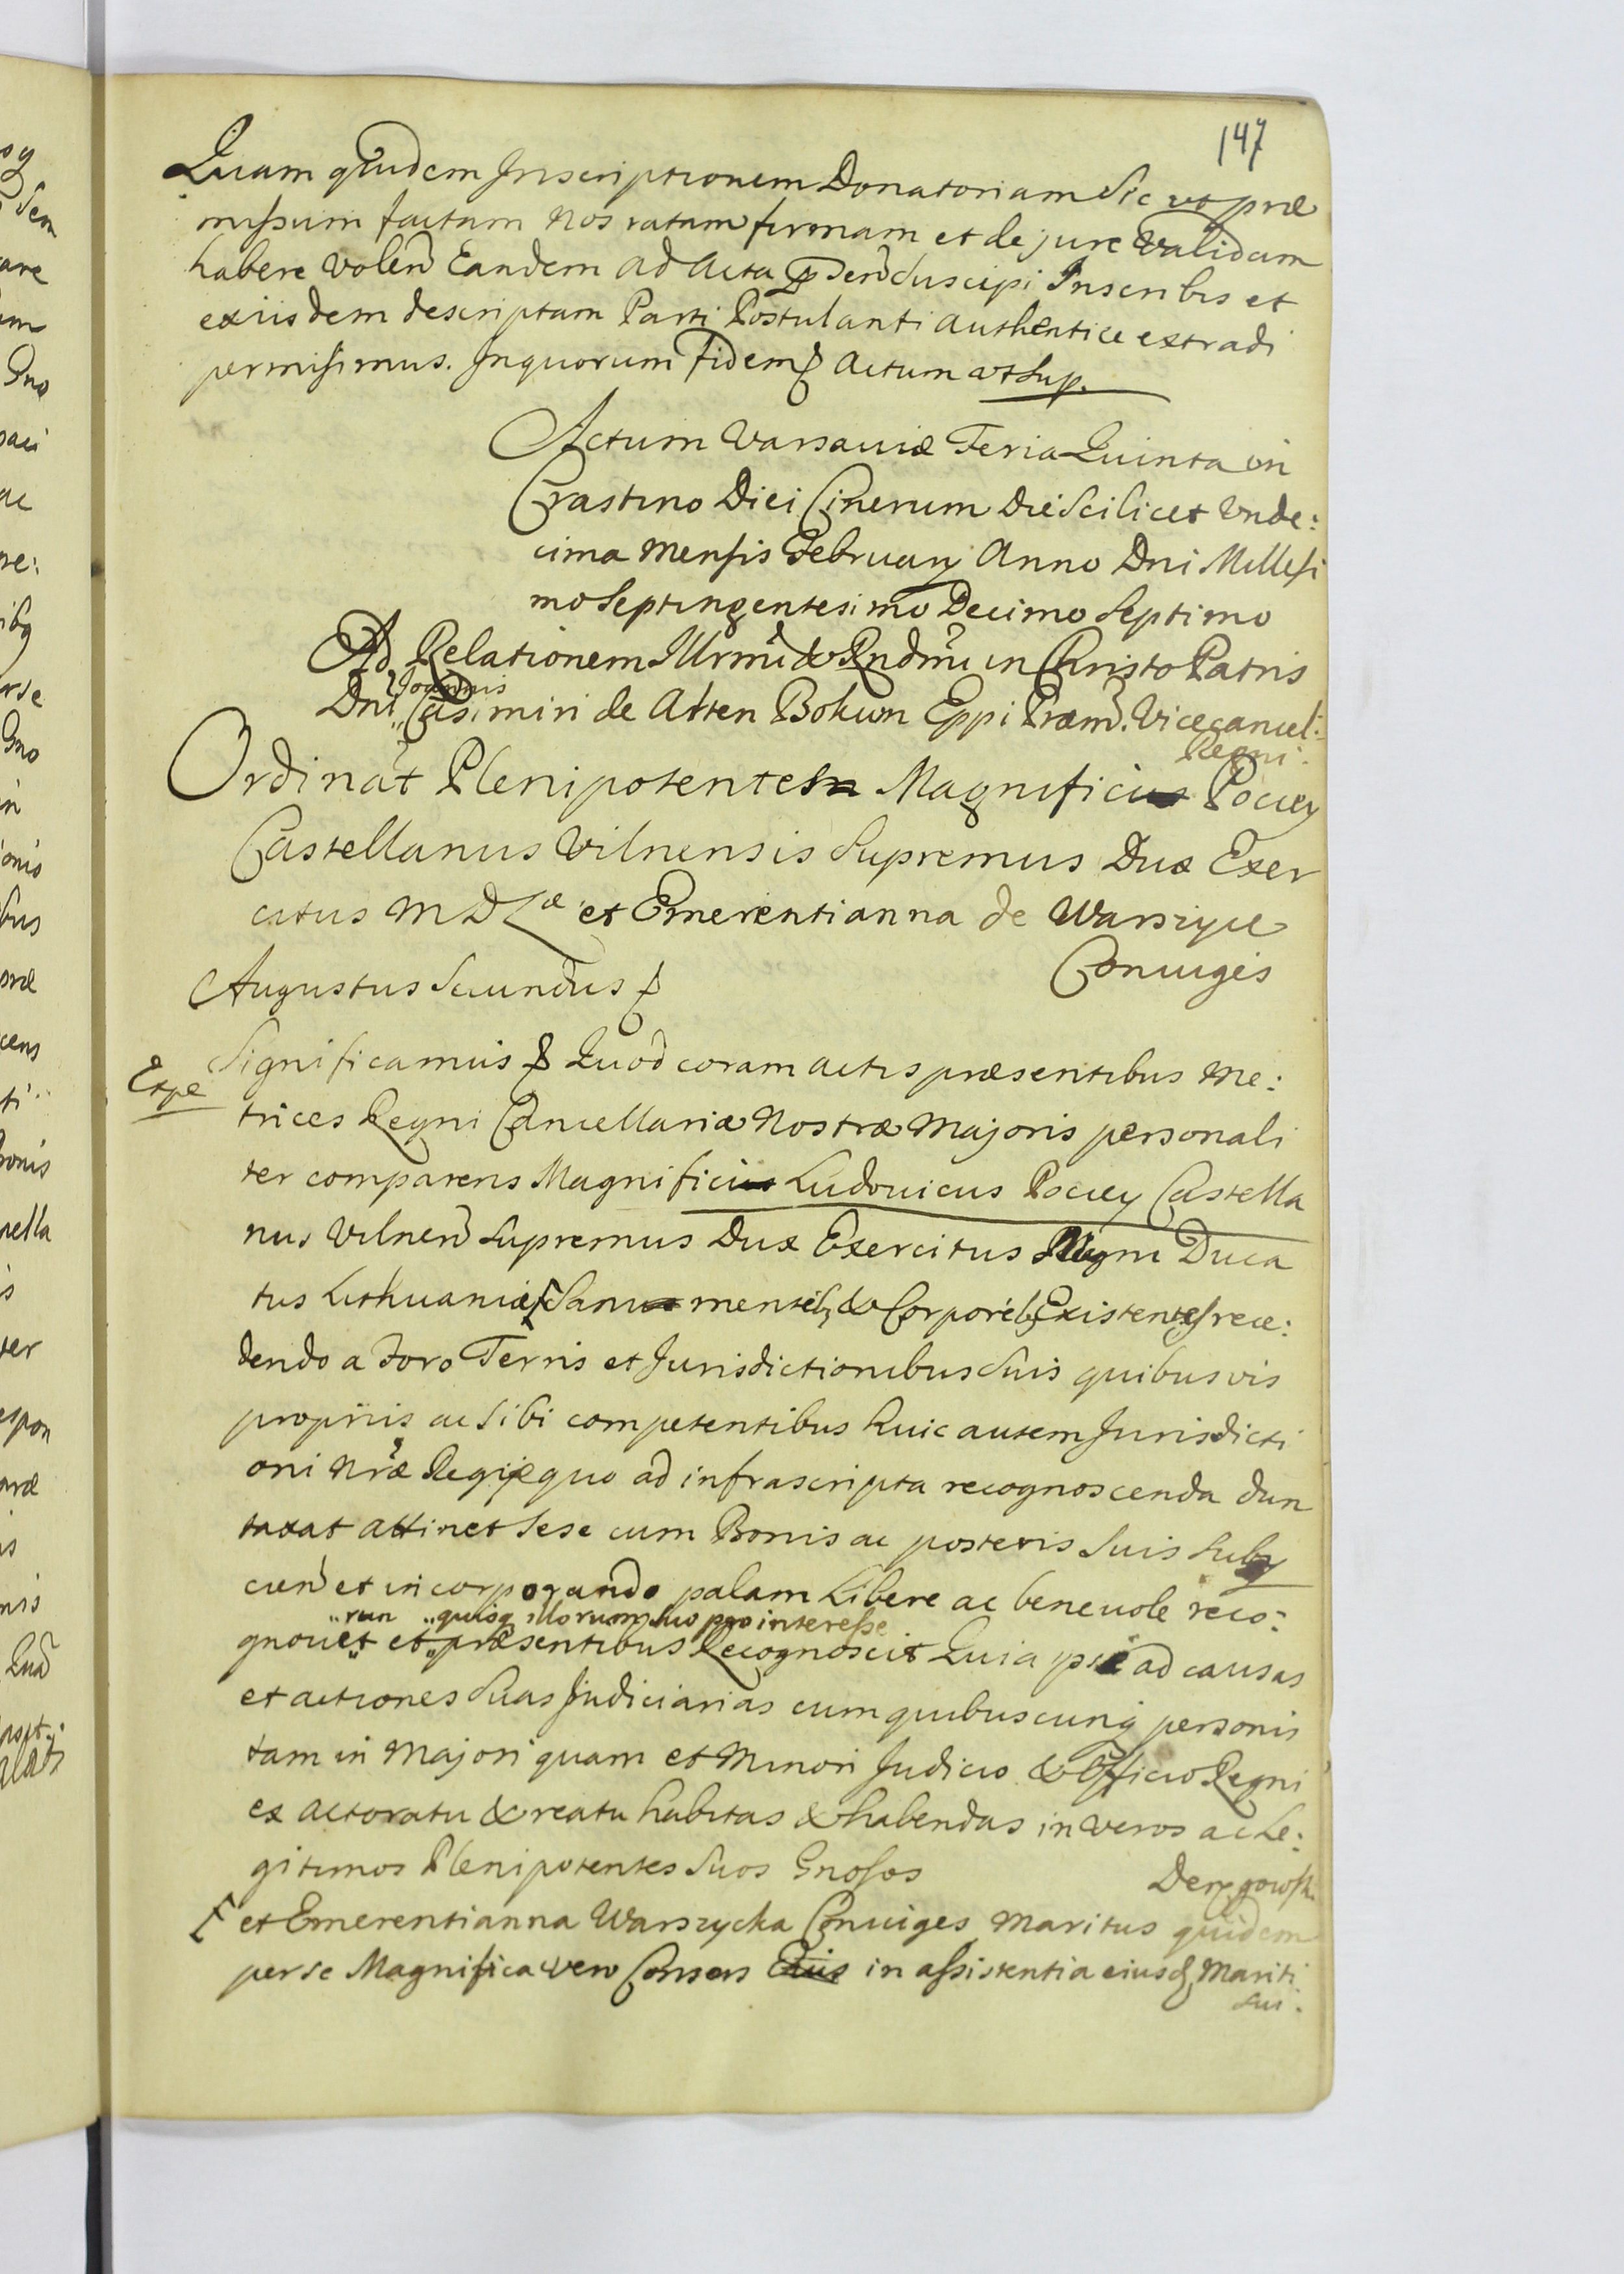 147
Quam quidem Inscriptionem Donatoriam Sic ut præ
missum factum Nos ratam firmam et de jure validam
habere volen Eandem ad Acta præsen suscipi Inscribi et
ex iisdem descriptam Parti Postulanti authentice extradi
permisimus. In quorum fidem Actum ut sup.
Actum Varsaviæ Feria Quinta in
Crastino Diei Cinerum Die Scilicet Unde:
cima Mensis February Anno Dni Millesi
mo Septingentesimo Decimo Septimo
Ad Relationem Illrmi & Rndmi in Christo Patris
Joannis
Dni Casimiri de Alten Bokum Eppi Præm. Vicecancel:
Regni.
Ordinat Plenipotentes Magnifici Pociey
Castellanus Vilnensis Supremus Dux Exer
citus M D L æ et Emerentianna de Warszyce
Coniuges
Augustus Secundus
Significamus Quod coram actis præsentibus Me:
Expe
trices Regni Cancellariæ Nostræ Majoris personali
ter comparens Magnifici Ludovicus Pociey Castella
nus Vilnen Supremus Dux Exercitus Magni Duca
tus Lithuaniæ Sani mentéq & Corporéq Existentes rece:
dendo a Foro Terris et Jurisdictionibus Suis quibusvis
propriis ac Sibi competentibus huic autem Jurisdicti
oni Nræ Regiæ quo ad infrascripta recognoscenda dun
taxat attinet Sese cum Bonis ac posteris Suis Suby
cien et incorporando palam Libere ac benevole reco:
"run "quisq illorum suo pro interesse
gnovet et præsentibus Recognoscit Quia ipse ad causas
et actiones Suas Judiciarias cum quibuscunq personis
tam in Majori quam et Minori Judicio & Officio Regni
ex actoratu & reatu habitas & habendas in veros ac Le:
gitimos Plenipotentes Suos Gnosos
Deręgowsk.
et Emerentianna Warszycka Coniuges Maritus quidem
per se Magnifica vero Consors Eius in assistentia eiusd Mariti
sui.